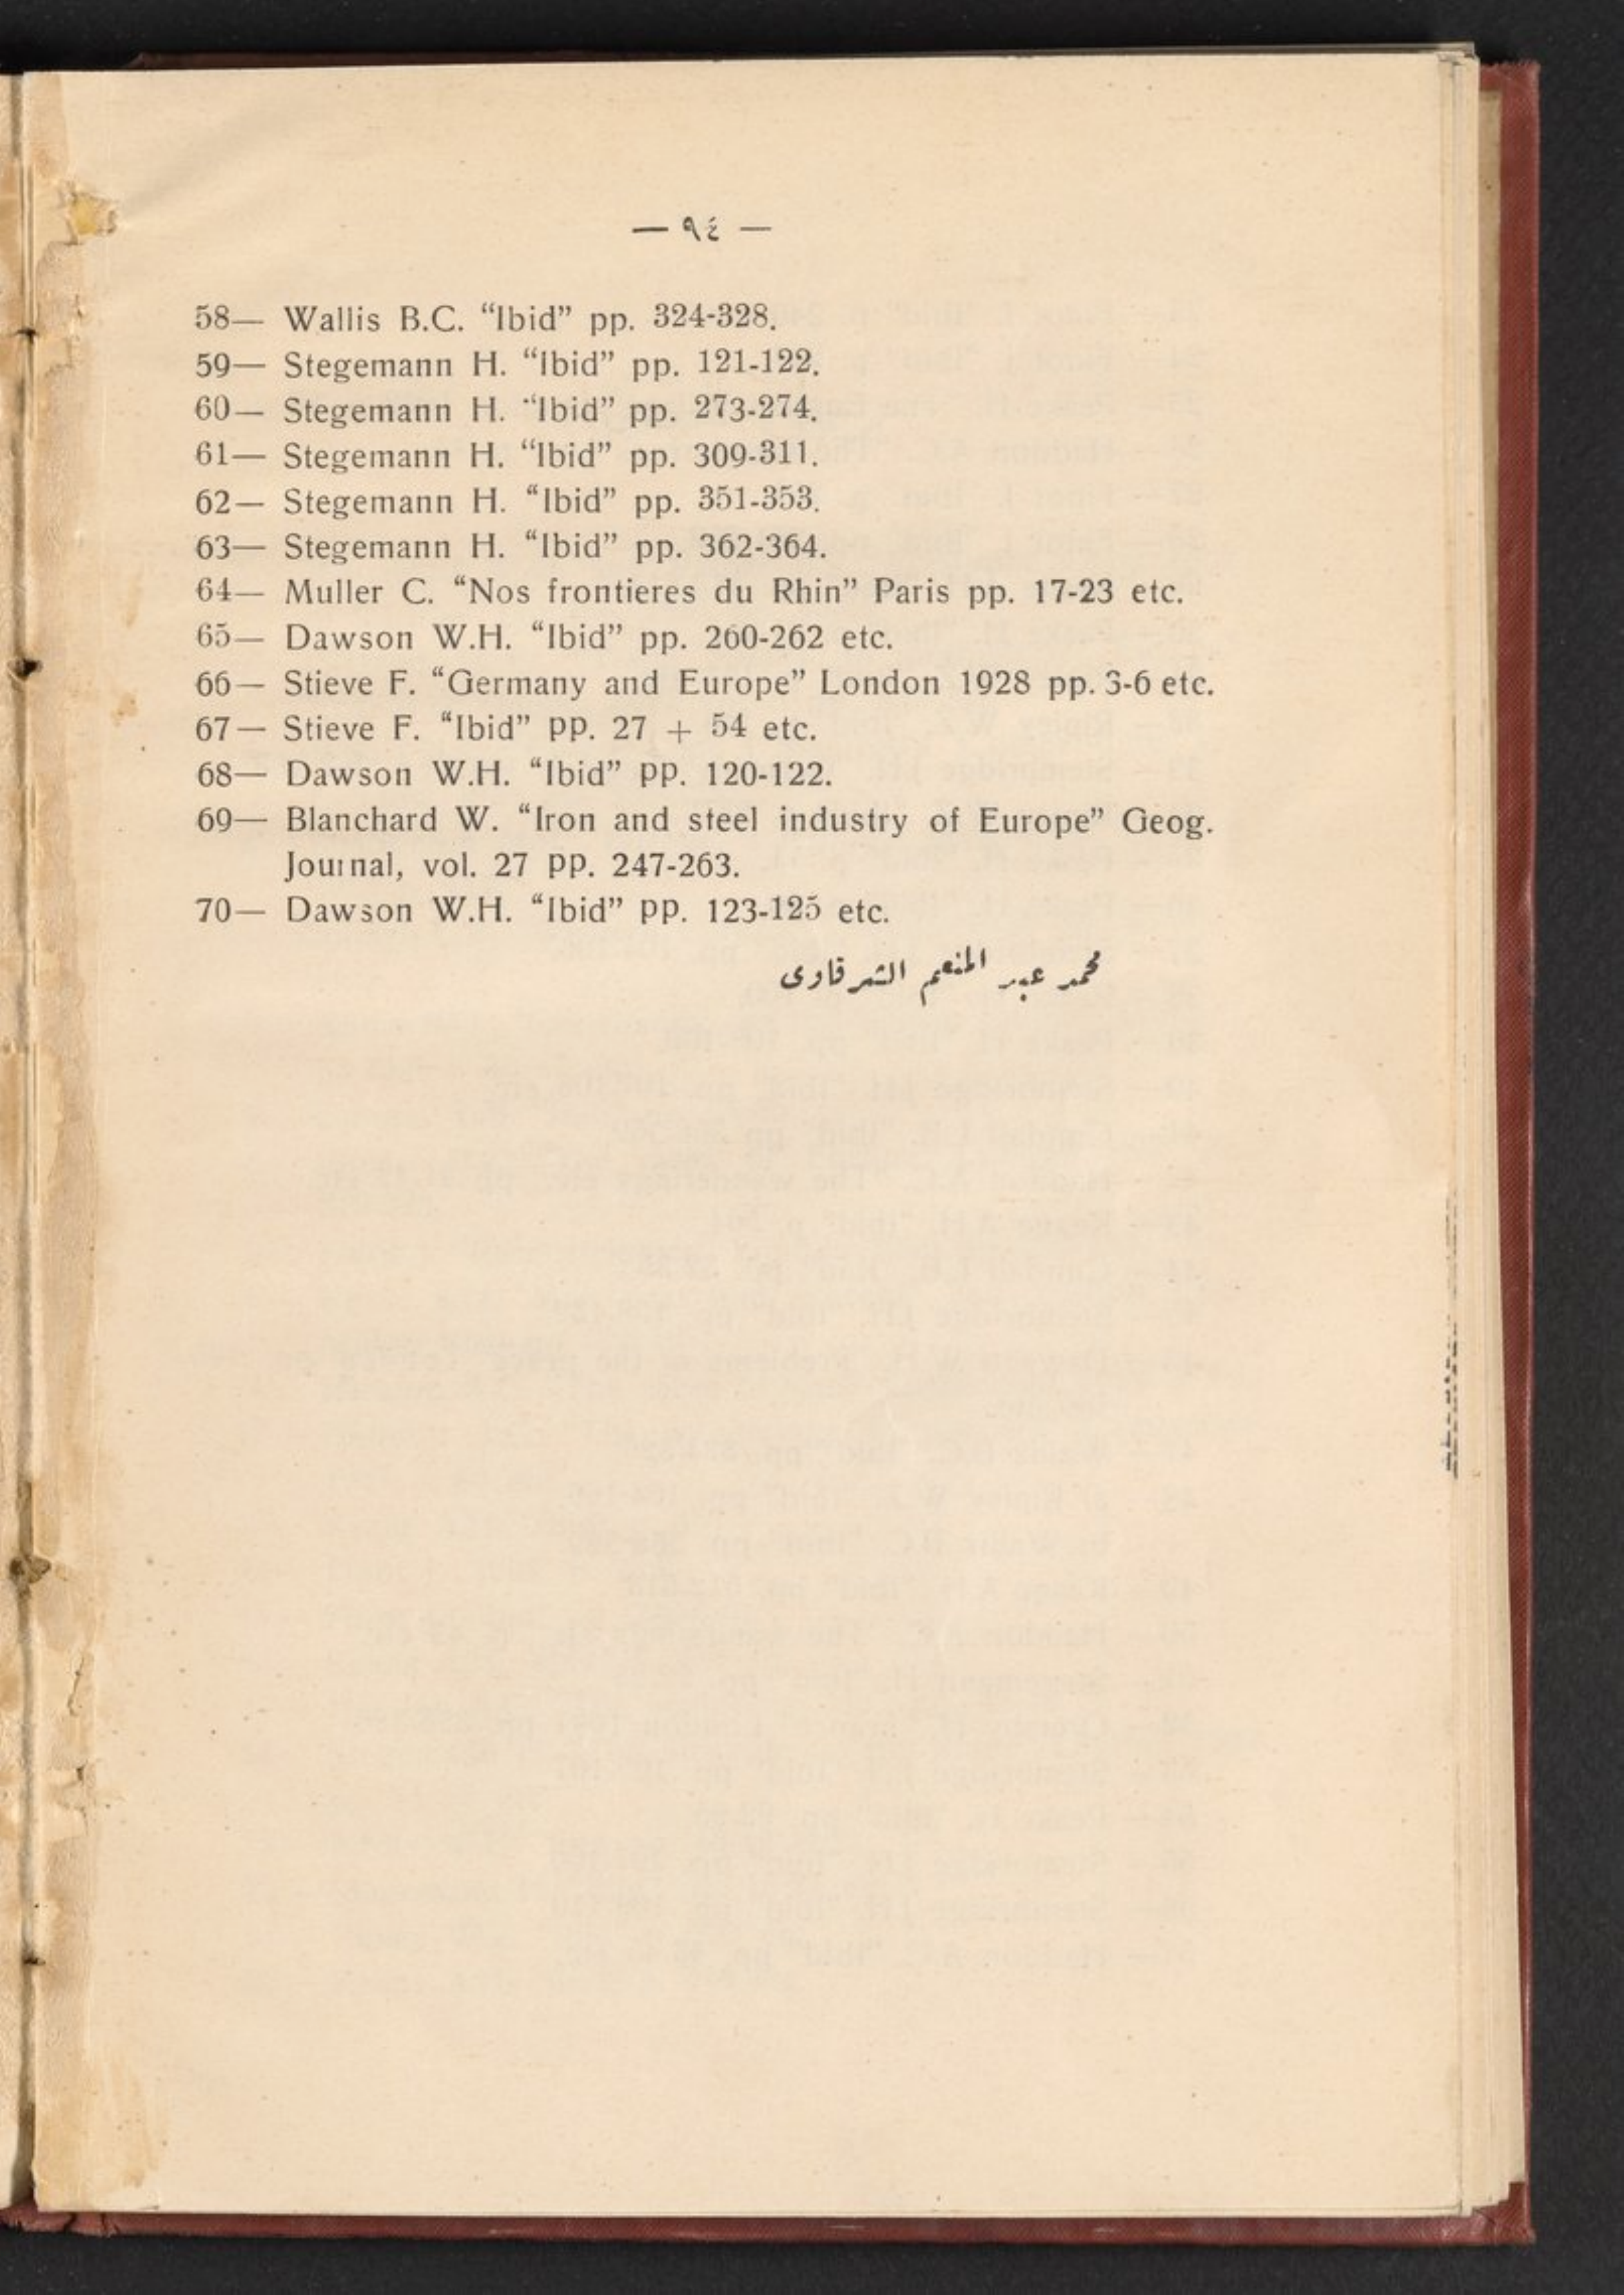 — ٩٤ —
58— Wallis B.C. “Ibid” pp. 324-328.
59— Stegemann H. “Ibid” pp. 121-122.
60— Stegemann H. “Ibid” pp. 273-274.
61— Stegemann H. “Ibid” pp. 309-311.
62— Stegemann H. “Ibid” pp. 351-353.
63— Stegemann H. “Ibid” pp. 362-364.
64— Muller C. “Nos frontieres du Rhin” Paris pp. 17-23 etc.
65— Dawson W.H. “Ibid” pp. 260-262 etc.
66— Stieve F. “Germany and Europe” London 1928 pp. 3-6 etc.
67— Stieve F. “Ibid” pp. 27 + 54 etc.
68— Dawson W.H. “Ibid” pp. 120-122.
69— Blanchard W. “Iron and steel industry of Europe” Geog.
Journal, vol. 27 pp. 247-263.
70— Dawson W.H. “Ibid” pp. 123-125 etc.
محمد عبد المنعم الشرقاوى